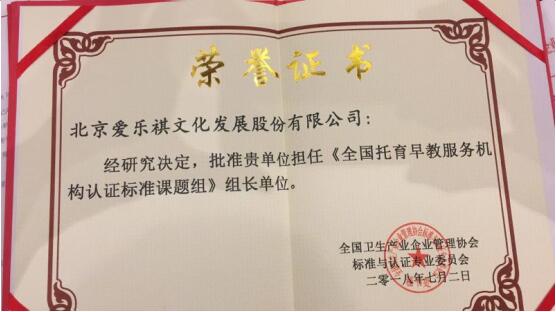 荣誉证书
北京爱乐祺文化发展股份有限公司：
经研究决定，批准贵单位担任《全国托育早教服务机
构认证标准课题组》组长单位。
全国卫生产业企业管理协会
标准与认证专业委员会
二零一八年七月二日